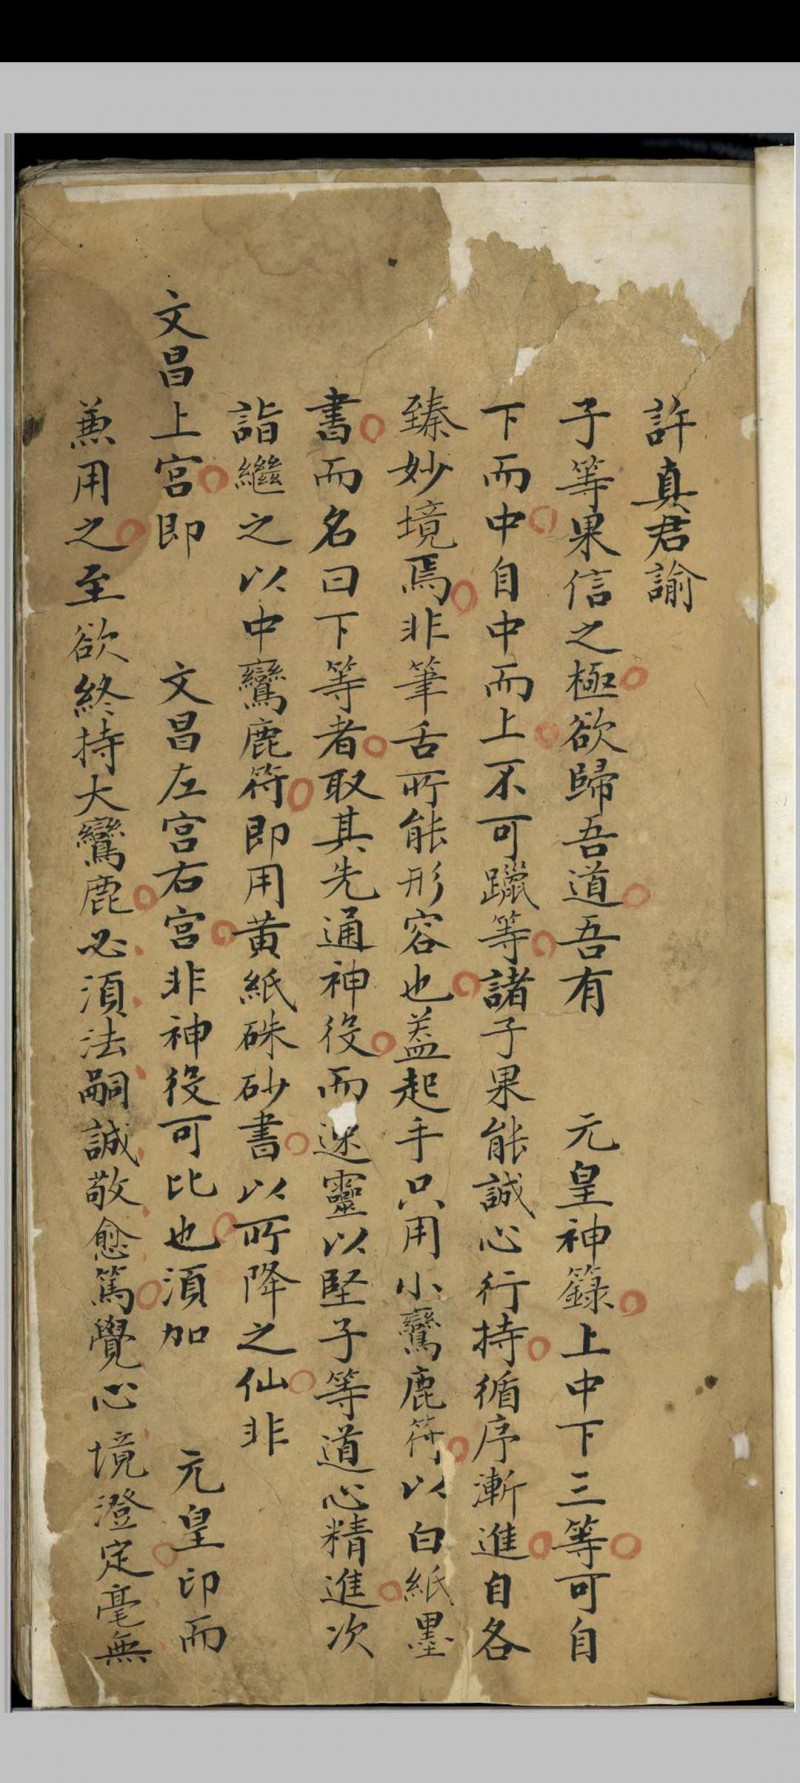 許真君諭
子等果信之極欲歸吾道吾有　元皇神籙上中下三等可自
下而中自中而上不可躐等諸子果能誠心行持循序漸進自各
臻妙境焉非筆舌所能形容也葢起手只用小鸞鹿符以白紙墨
書而名曰下等者取其先通神役而迷靈以堅子等道心精進次
詣繼之以中鸞鹿符即用黃紙硃砂書以所降之仙非
文昌上宮即　文昌左宮右宮非神役可比也湏加　元皇印而
兼用之至欲終持大鸞鹿必湏法嗣誠敬愈篤覺心境澄定毫無